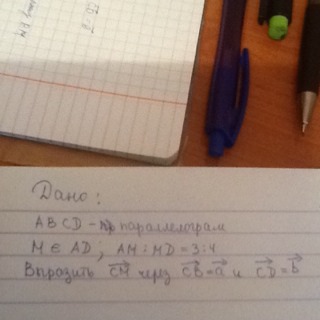 Дано:
ABCD - параллелограм
M ∈ AD; AM : MD = 3:4
Впразить CM через CB = a и CD = b